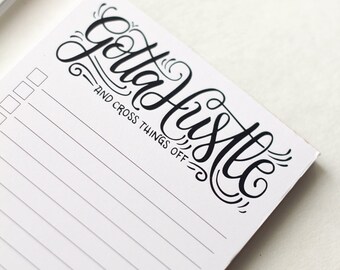 Gotta Hustle
AND CROSS THINGS OFF